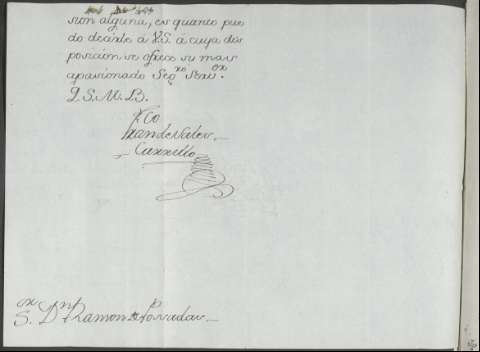 sion alguna, es quanto pue
do decirle à V.S. à cuya dis
posicion se ofrece su mas
apasionado Seg.ro Serv.or
Q.S.M.B.
Fco
Carrillo
S.or Dn Ramon de Posadas